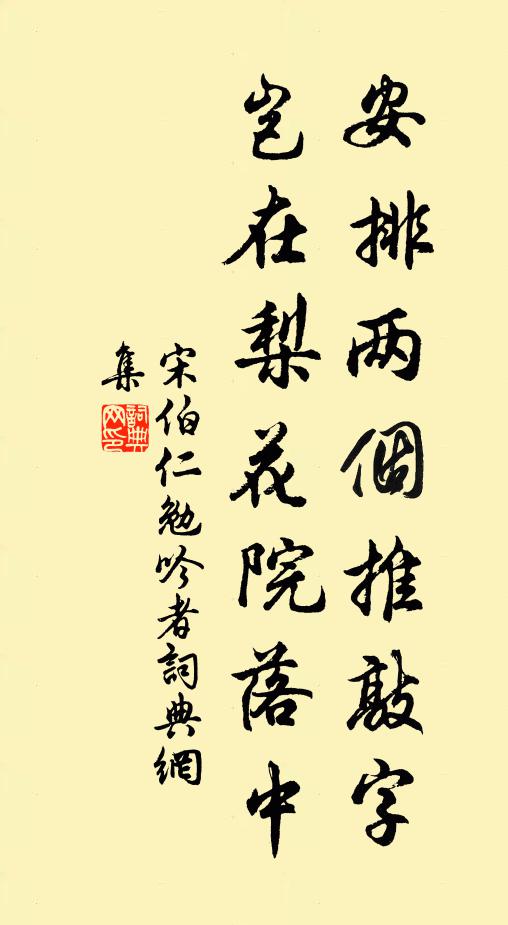 安排两個推敲字
岂在梨花院落中
宋伯仁勉吟者詞典網
集
詞典网印